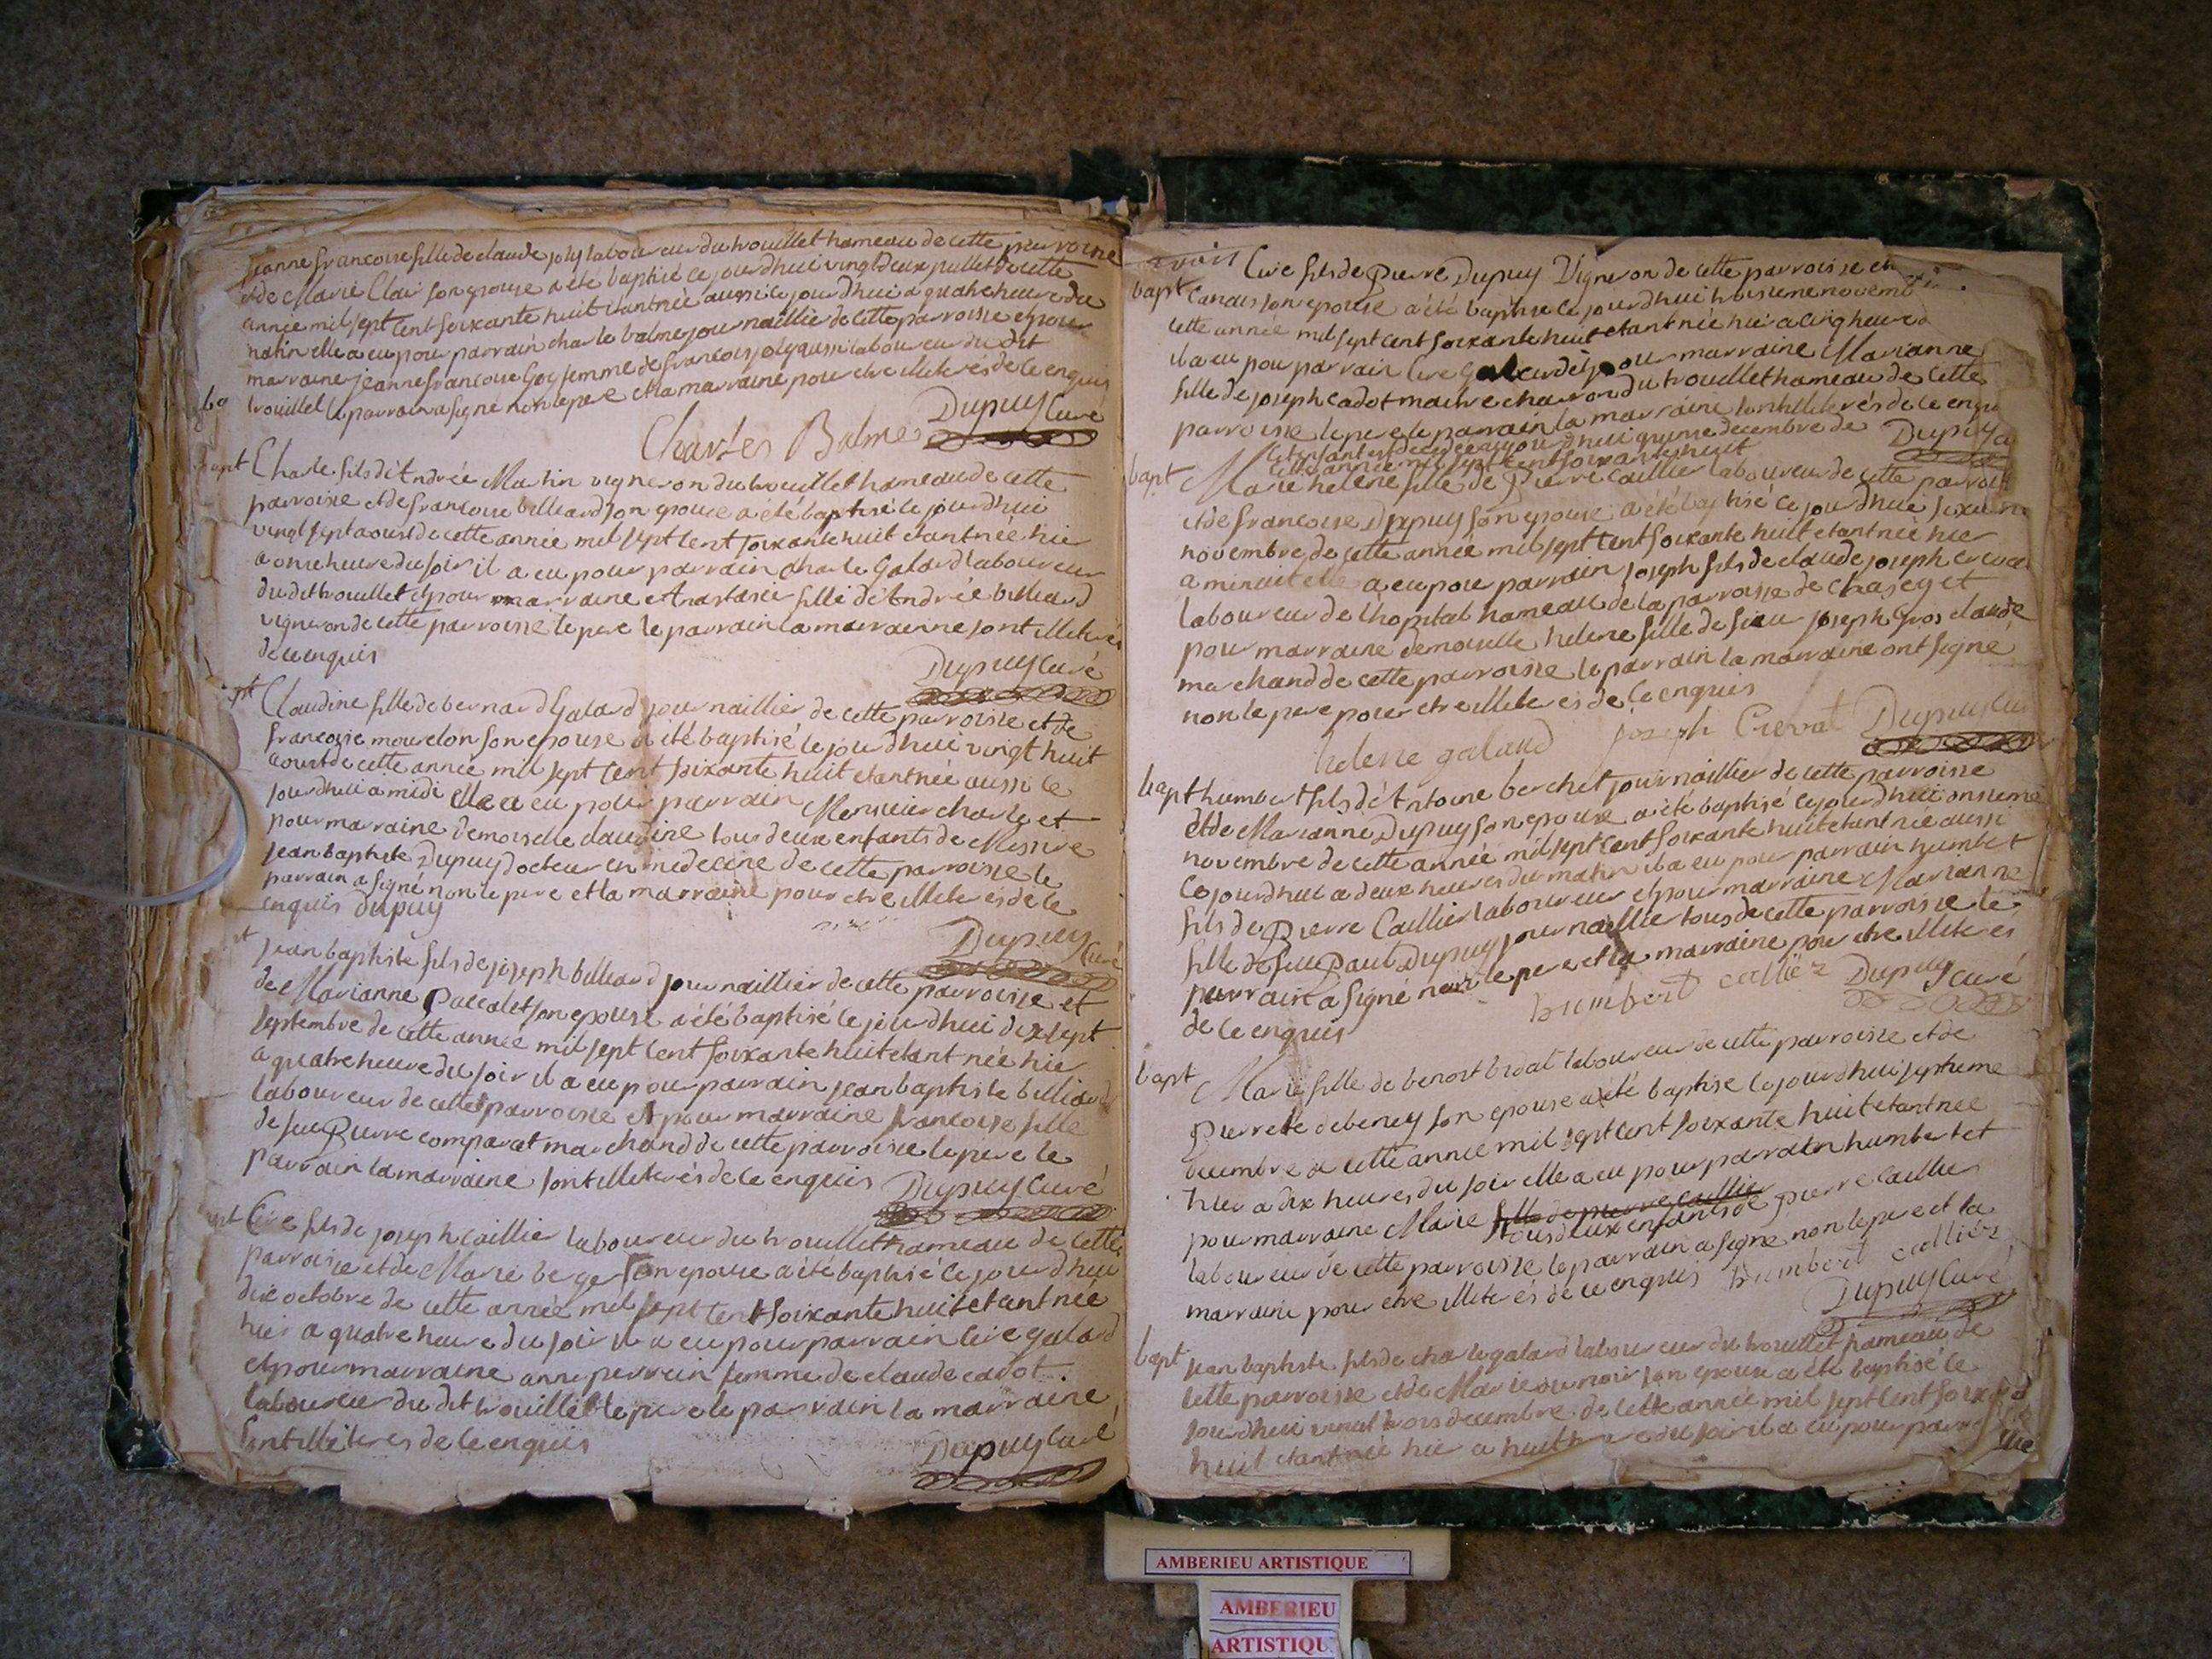 jeanne francoise fille de claude joly laboureur du trouillet hameau de cette parroisse
et de Marie Clair son epouse a été baptisé ce jourdhui vingt deux juillet de cette
année mil sept cent soixante huit etant née aussi ce jourdhui a quatre heures du
matin elle a eu pour parrain charle balme journaillier de cette parroisse et pour
marraine jeanne francoise Goy femme de francois joly aussi laboureur du dit
trouillet le parrain a signé non le pere et la marraine pour etre illiterés de ce enquis
Charles Balme Dupuy Curé
bapt Charle fils d'Andrée Martin vigneron du trouillet hameau de cette
parroisse et de francoise billiard son epouse a été baptisé ce jourdhui
vingt sept aoust de cette année mil sept cent soixante huit etant née hier
a onze heure du soir il a eu pour parrain charle Galard laboureur
du dit trouillet et pour marraine Anastasie fille d'Andrée billiard
vigneron de cette parroisse le pere le parrain la marrainne sont illiterés
de ce enquis
Dupuy Curé
pt Claudine fille de bernard Galard journaillier de cette parroisse et de
francoise mourdon son epouse a été baptisé ce jourdhui vingt huit
aoust de cette année mil sept cent soixante huit etant née aussi ce
jourdhui a midi elle a eu pour parrain Monsieur charle et
pour marraine demoiselle claudine tous deux enfants de Messire
jean baptiste Dupuy docteur en medecine de cette parroisse le
parrain a signé non le pere et la marraine pour etre illiterés de ce
enquis dupuy
Dupuy Curé
pt jean baptiste fils de joseph billiard journaillier de cette parroisse et
de Marianne Paccalet son epouse a été baptisé ce jourdhui dix sept
septembre de cette année mil sept cent soixante huit etant née hier
a quatre heure du soir il a eu pour parrain jean baptiste billiard
laboureur de cette parroisse et pour marraine francoise fille
de feu Pierre comparat marchand de cette parroisse le pere le
parrain la marraine sont illiterés de ce enquis Dupuy Curé
pt Cire fils de joseph caillier laboureur du trouillet hameau de cette
parroisse et de Marie berger son epouse a été baptisé ce jourdhui
dix octobre de cette année mil sept cent soixante huit etant née
hier a quatre heure du soir il a eu pour parrain cire galard
et pour marraine anne perrein femme de claude cadot
laboureur du dit trouillet le pere le parrain la marraine
sont illiterés de ce enquis
Dupuy Curé
Cire fils de Pierre Dupuy Vigneron de cette parroisse et
bapt son epouse a été baptisé ce jourdhui troisieme novemb
cette année mil sept cent soixante huit etant née hier a cinq heure d
il a eu pour parrain Cire et pour marraine Marianne
fille de joseph cadot maitre charron du trouillet hameau de cette
parroisse le pere le parrain la marraine sont illiterés de ce enqu
Dupuy
cet enfant est decedée aujourdhui quinze decembre de
cette année mil sept cent soixante huit
bapt Marie helene fille de Pierre Caillier laboureur de cette parroiss
et de francoise Dupuy son epouse a été baptisé ce jourdhui sixieme
novembre de cette année mil sept cent soixante huit etant née hier
a minuit elle a eu pour parrain joseph fils de claude joseph
laboureur de lhopital hameau de la parroisse de chasey et
pour marraine demoiselle helene fille de sieur joseph Gros claude
marchand de cette parroisse le parrain la marraine ont signé
non le pere pour etre illiterés de ce enquis
helene galand joseph Crevat Dupuy Cu
bapt humbert fils d'Antoine berchet journaillier de cette parroisse
et de Marianne Dupuy son epouse a été baptisé ce jourdhui onsieme
novembre de cette année mil sept cent soixante huit etant née aussi
ce jourdhui a deux heures du matin il a eu pour parrain humbert
fils de Pierre Caillier laboureur et pour marraine Marianne
fille de feu Paul Dupuy journaillier tous de cette parroisse le
parrain a signé non le pere et la marraine pour etre illiterés
de ce enquis humbert cailliez Dupuy Curé
bapt Marie fille de benoit bidal laboureur de cette parroisse et de
Pierrete debeney son epouse a été baptisé ce jourdhui septieme
decembre de cette année mil sept cent soixante huit etant née
hier a dix heures du soir elle a eu pour parrain humbert et
pour marraine Marie fille de pierre caillier tous deux enfants de pierre caillier
laboureur de cette parroisse le parrain a signé non le pere et la
marraine pour etre illiterés de ce enquis humbert cailliez
Dupuy Curé
bapt jean baptiste fils de charle galard laboureur du trouillet hameau de
cette parroisse et de Marie son epouse a été baptisé ce
jourdhui vingt trois decembre de cette année mil sept cent soix
huit etant née hier a huit heure du soir il a eu pour parr
AMBERIEU ARTISTIQUE
AMBERIEU
ARTISTIQU